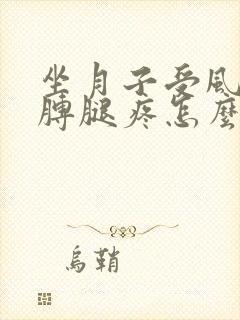 坐月子受风
膊腿疼怎麼
乌鞘